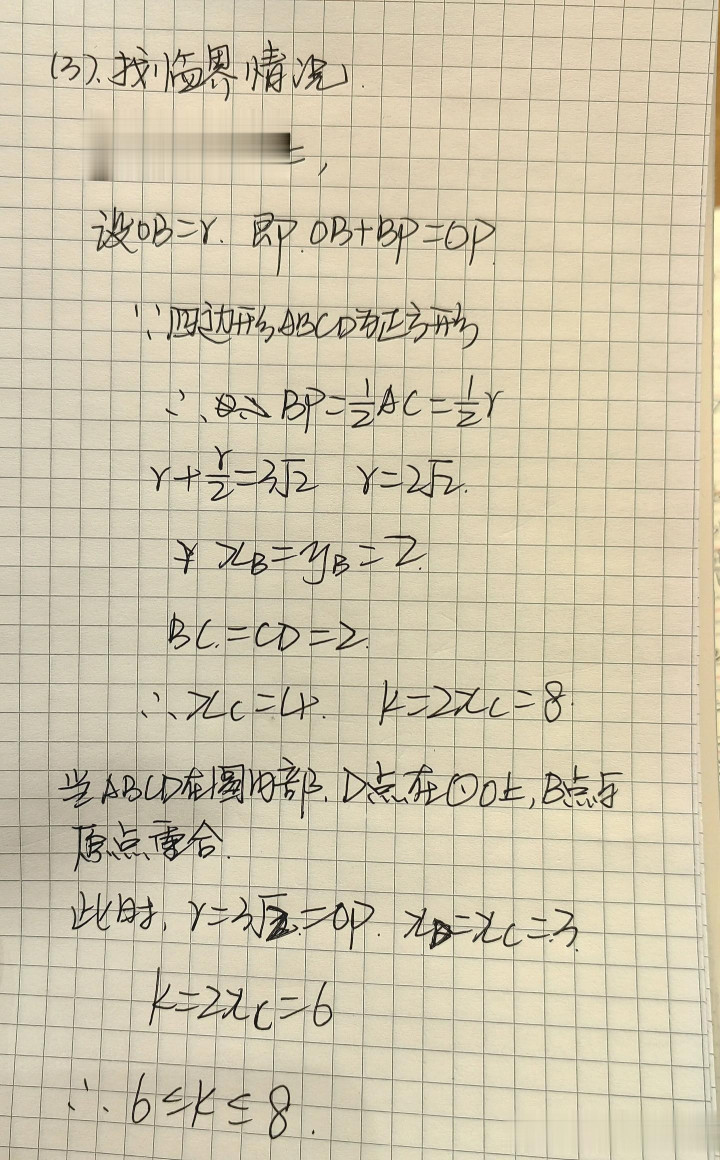 (3).找临界情况.
=,
设OB=r. 即.OB+BP=OP.
∵四边形ABCD为正方形
∴ BP=½AC=½r
r+r/2=3√2 r=2√2.
x_B=y_B=2.
BC.=CD=2.
∴x_C=4. k=2x_C=8.
当ABCD在圆内部.D点在⊙O上,B点与
原点重合.
此时,r=3√2=OP. x_D=x_C=3.
k=2x_C=6
∴6≤k≤8.